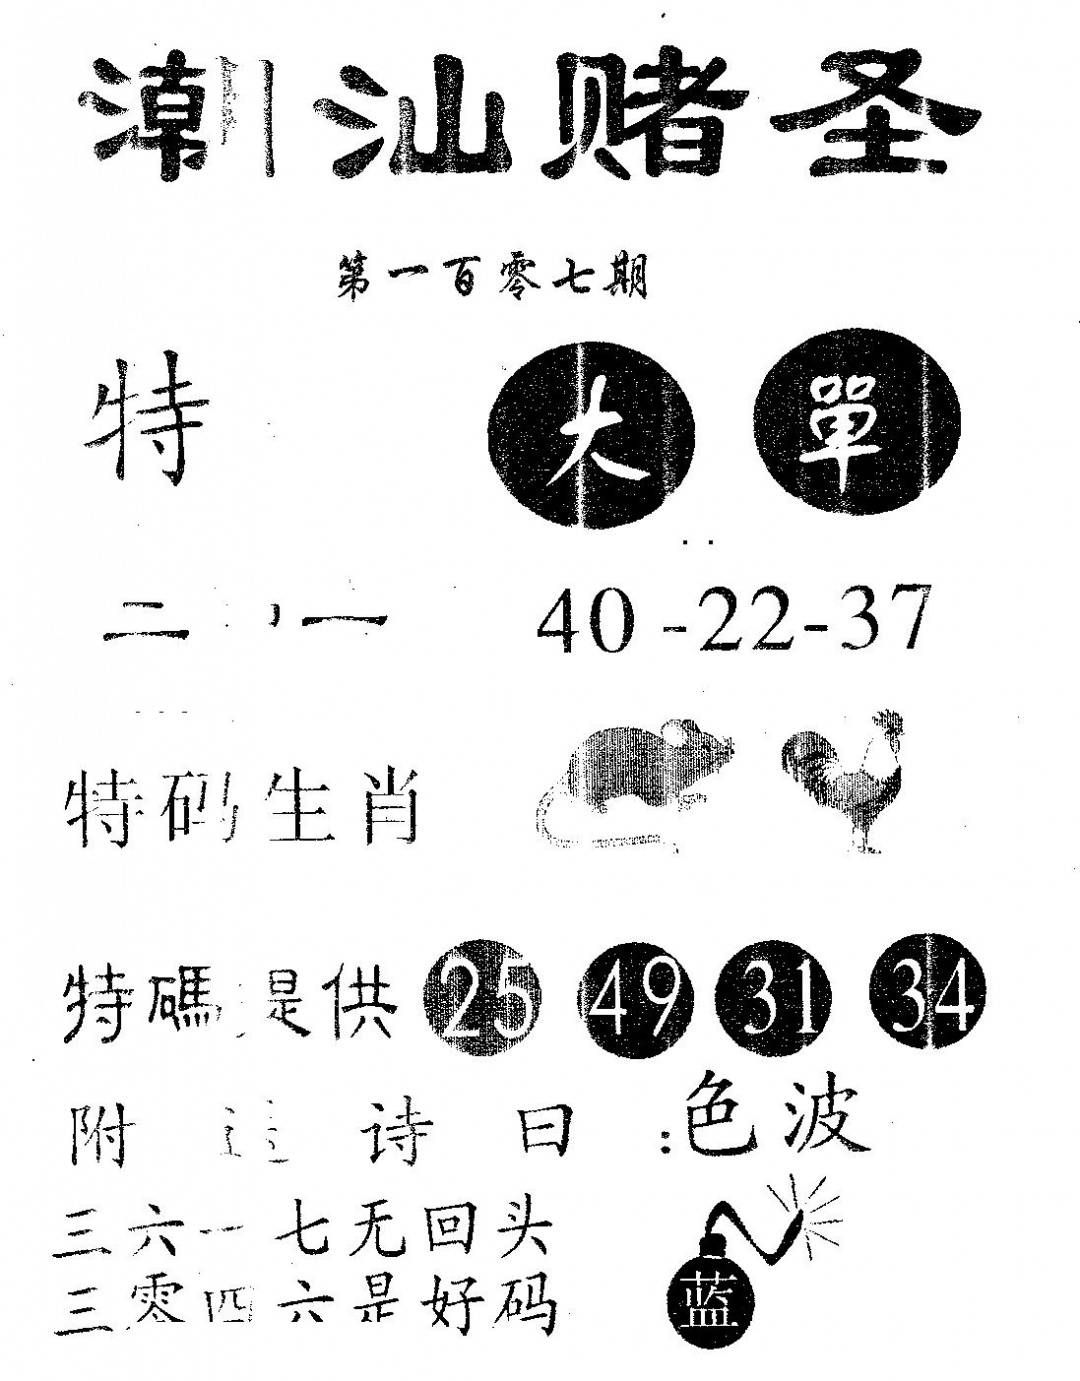 潮汕赌圣
第一百零七期
特 大 單
二 一 40-22-37
特码生肖
特碼提供 25 49 31 34
附送诗曰:色波
三六一七无回头
三零四六是好码
蓝